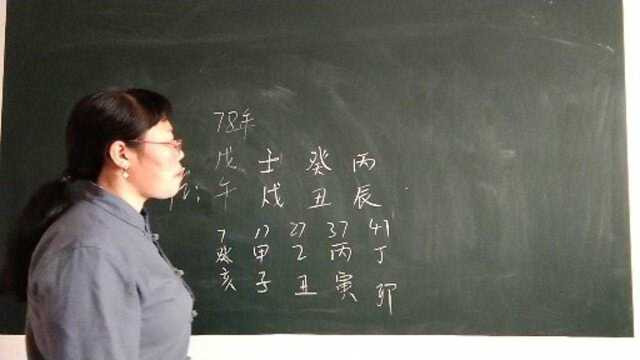 78年
戊 壬 癸 丙
: 午 戌 丑 辰
7 17 27 37 47
癸 甲 乙 丙 丁
亥 子 丑 寅 卯